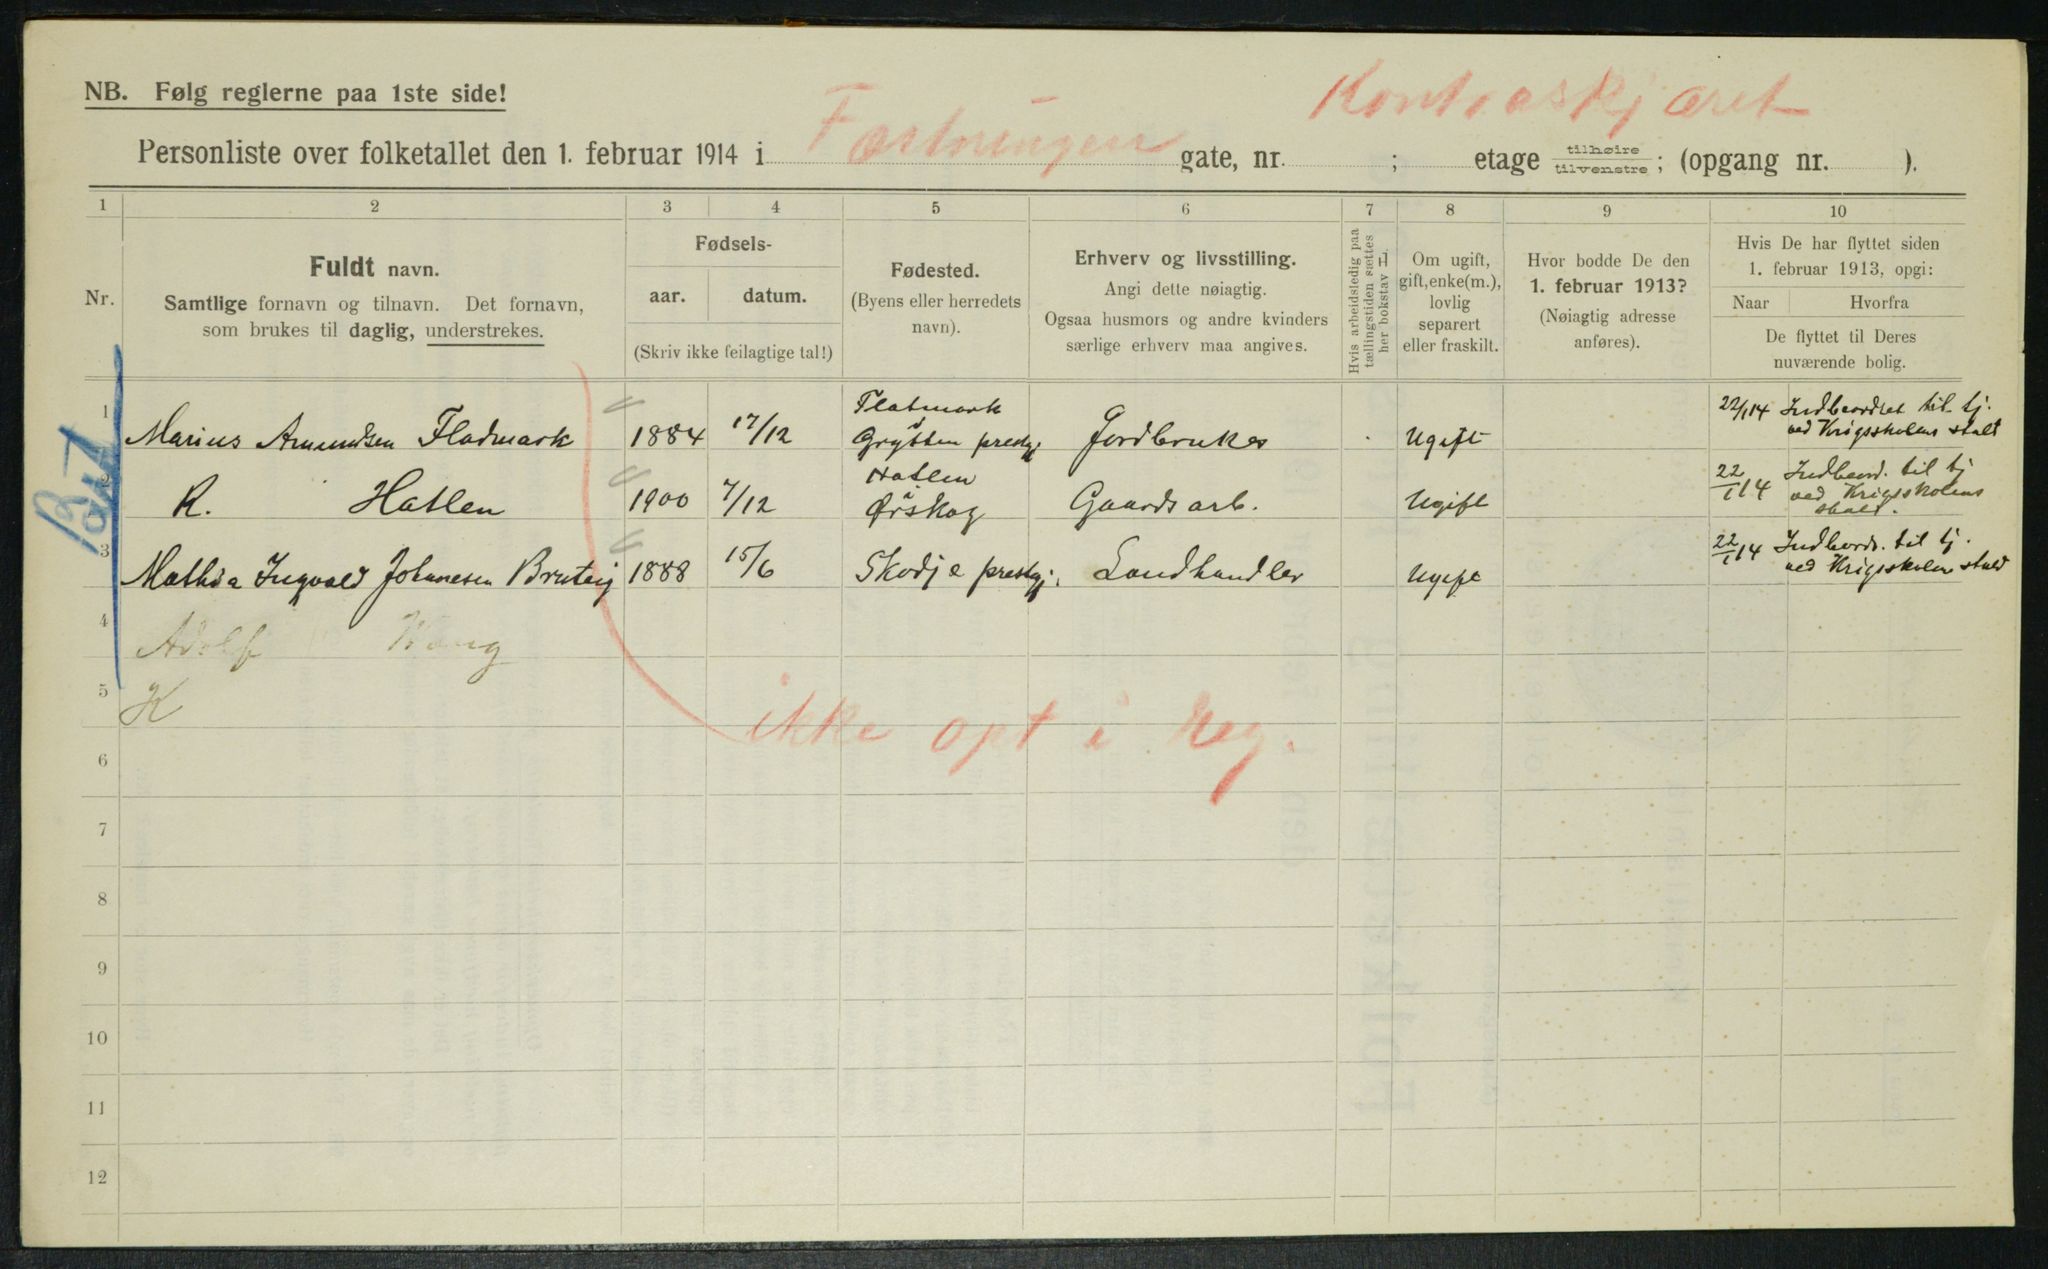 Kontraskjæret
NB. Følg reglerne paa 1ste side!
Personliste over folketallet den 1. februar 1914 i Fæstningen gate, nr. ; etage tilhøire tilvenstre ; (opgang nr. ).
1 2 3 4 5 6 7 8 9 10
Nr.
Fuldt navn.
Samtlige fornavn og tilnavn. Det fornavn,
som brukes til daglig, understrekes.
Fødsels-
aar. datum.
(Skriv ikke feilagtige tal!)
Fødested.
(Byens eller herredets
navn).
Erhverv og livsstilling.
Angi dette nøiagtig.
Ogsaa husmors og andre kvinders
særlige erhverv maa angives.
Hvis arbeidsledig paa
tællingstiden sættes
her bokstav L
Om ugift,
gift, enke(m.),
lovlig
separert
eller fraskilt.
Hvor bodde De den
1. februar 1913?
(Nøiagtig adresse
anføres).
Hvis De har flyttet siden
1. februar 1913, opgi:
Naar Hvorfra
De flyttet til Deres
nuværende bolig.
1 Marius Amundsen Fladmark 1884 17/12 Flatmark Grytten prestgj Jordbruker Ugift 22/1 14 Indbeordret til tj. ved Krigsskolens stall
2 R. Hatlen 1900 7/12 Hatlen Ørskog Gaardsarb. Ugift 22/1 14 Indbeord. til tj ved Krigsskolens stall.
3 Mathis Ingvald Johanesen Bruteig 1888 15/6 Skodje prestgj. Landhandler Ugift 22/1 14 Indbeord. til tj. ved Krigsskolen stald
4 Adolf Wang
5 K
ikke opt i reg.
6
7
8
9
10
11
12